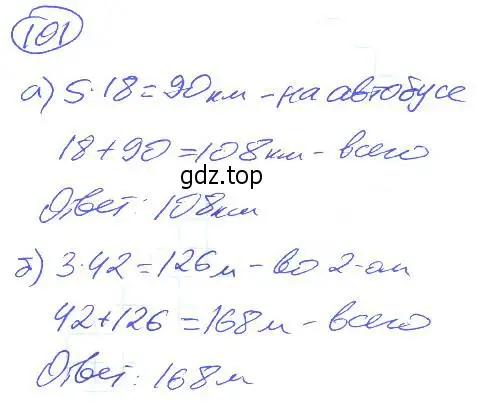 101
а) 5·18=90км – на автобусе
18+90=108км – всего
gdz.top
Ответ: 108км
б) 3·42=126м – во 2-ом
42+126=168м – всего
Ответ: 168м